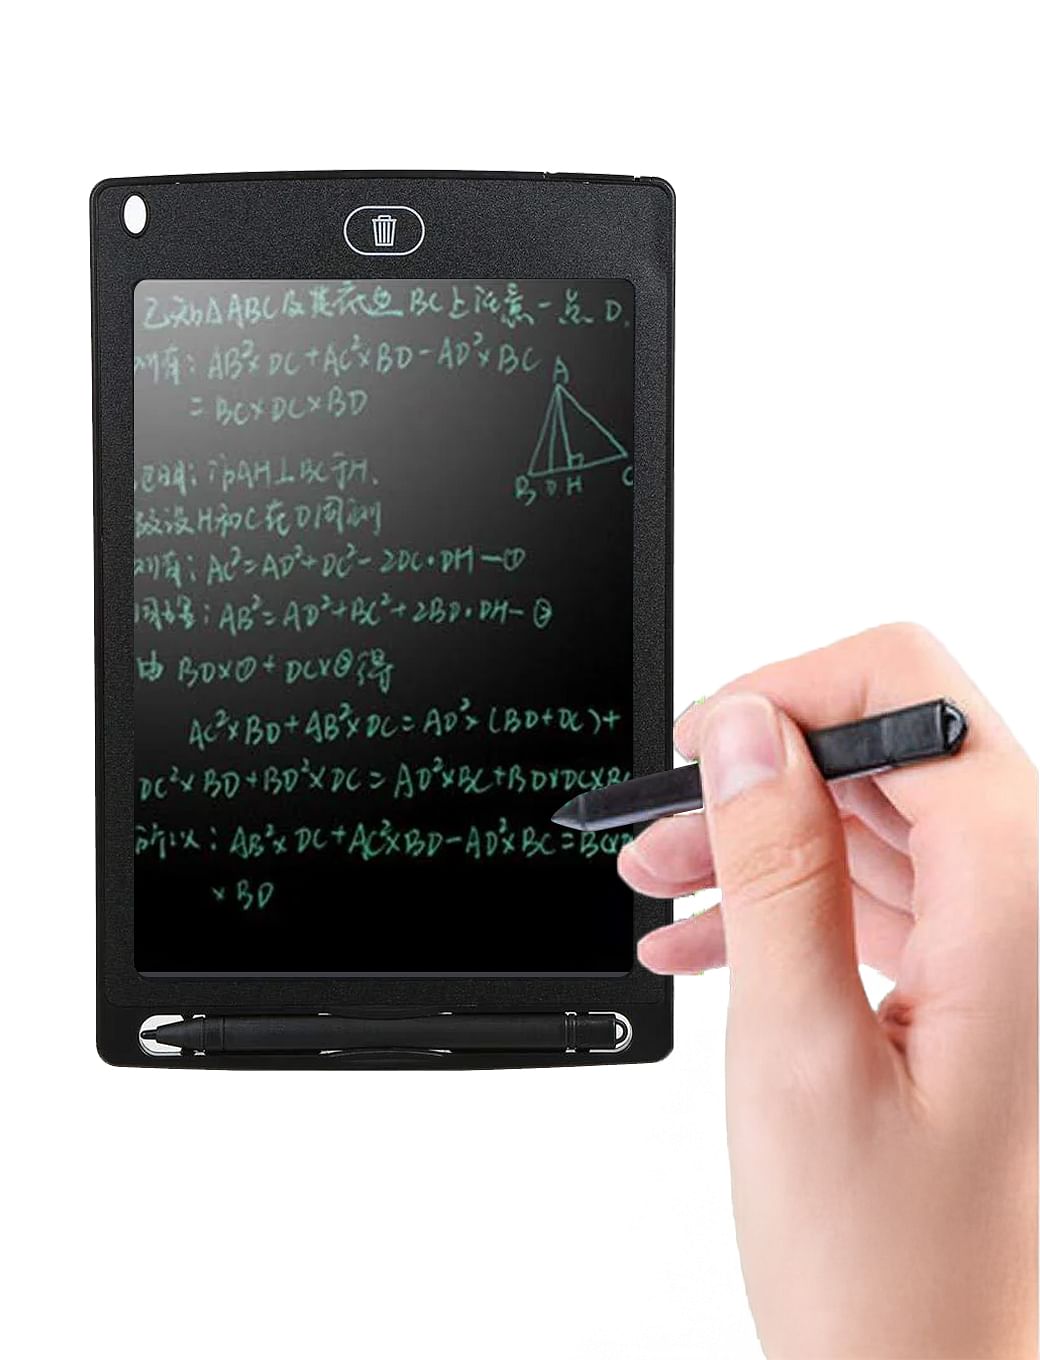 已知△ABC及其底边BC上任意一点D.
则有: AB²×DC+AC²×BD-AD²×BC
= BC×DC×BD
A
B D H C
证明: 作AH⊥BC于H.
设H和C在D同侧
则有: AC²=AD²+DC²-2DC·DH-①
: AB²=AD²+BC²+2BD·DH-②
由 BD×①+DC×②得
AC²×BD+AB²×DC=AD²×(BD+DC)+
DC²×BD+BD²×DC=AD²×BC+BD×DC×BC
所以: AB²×DC+AC²×BD-AD²×BC=BC×D
×BD